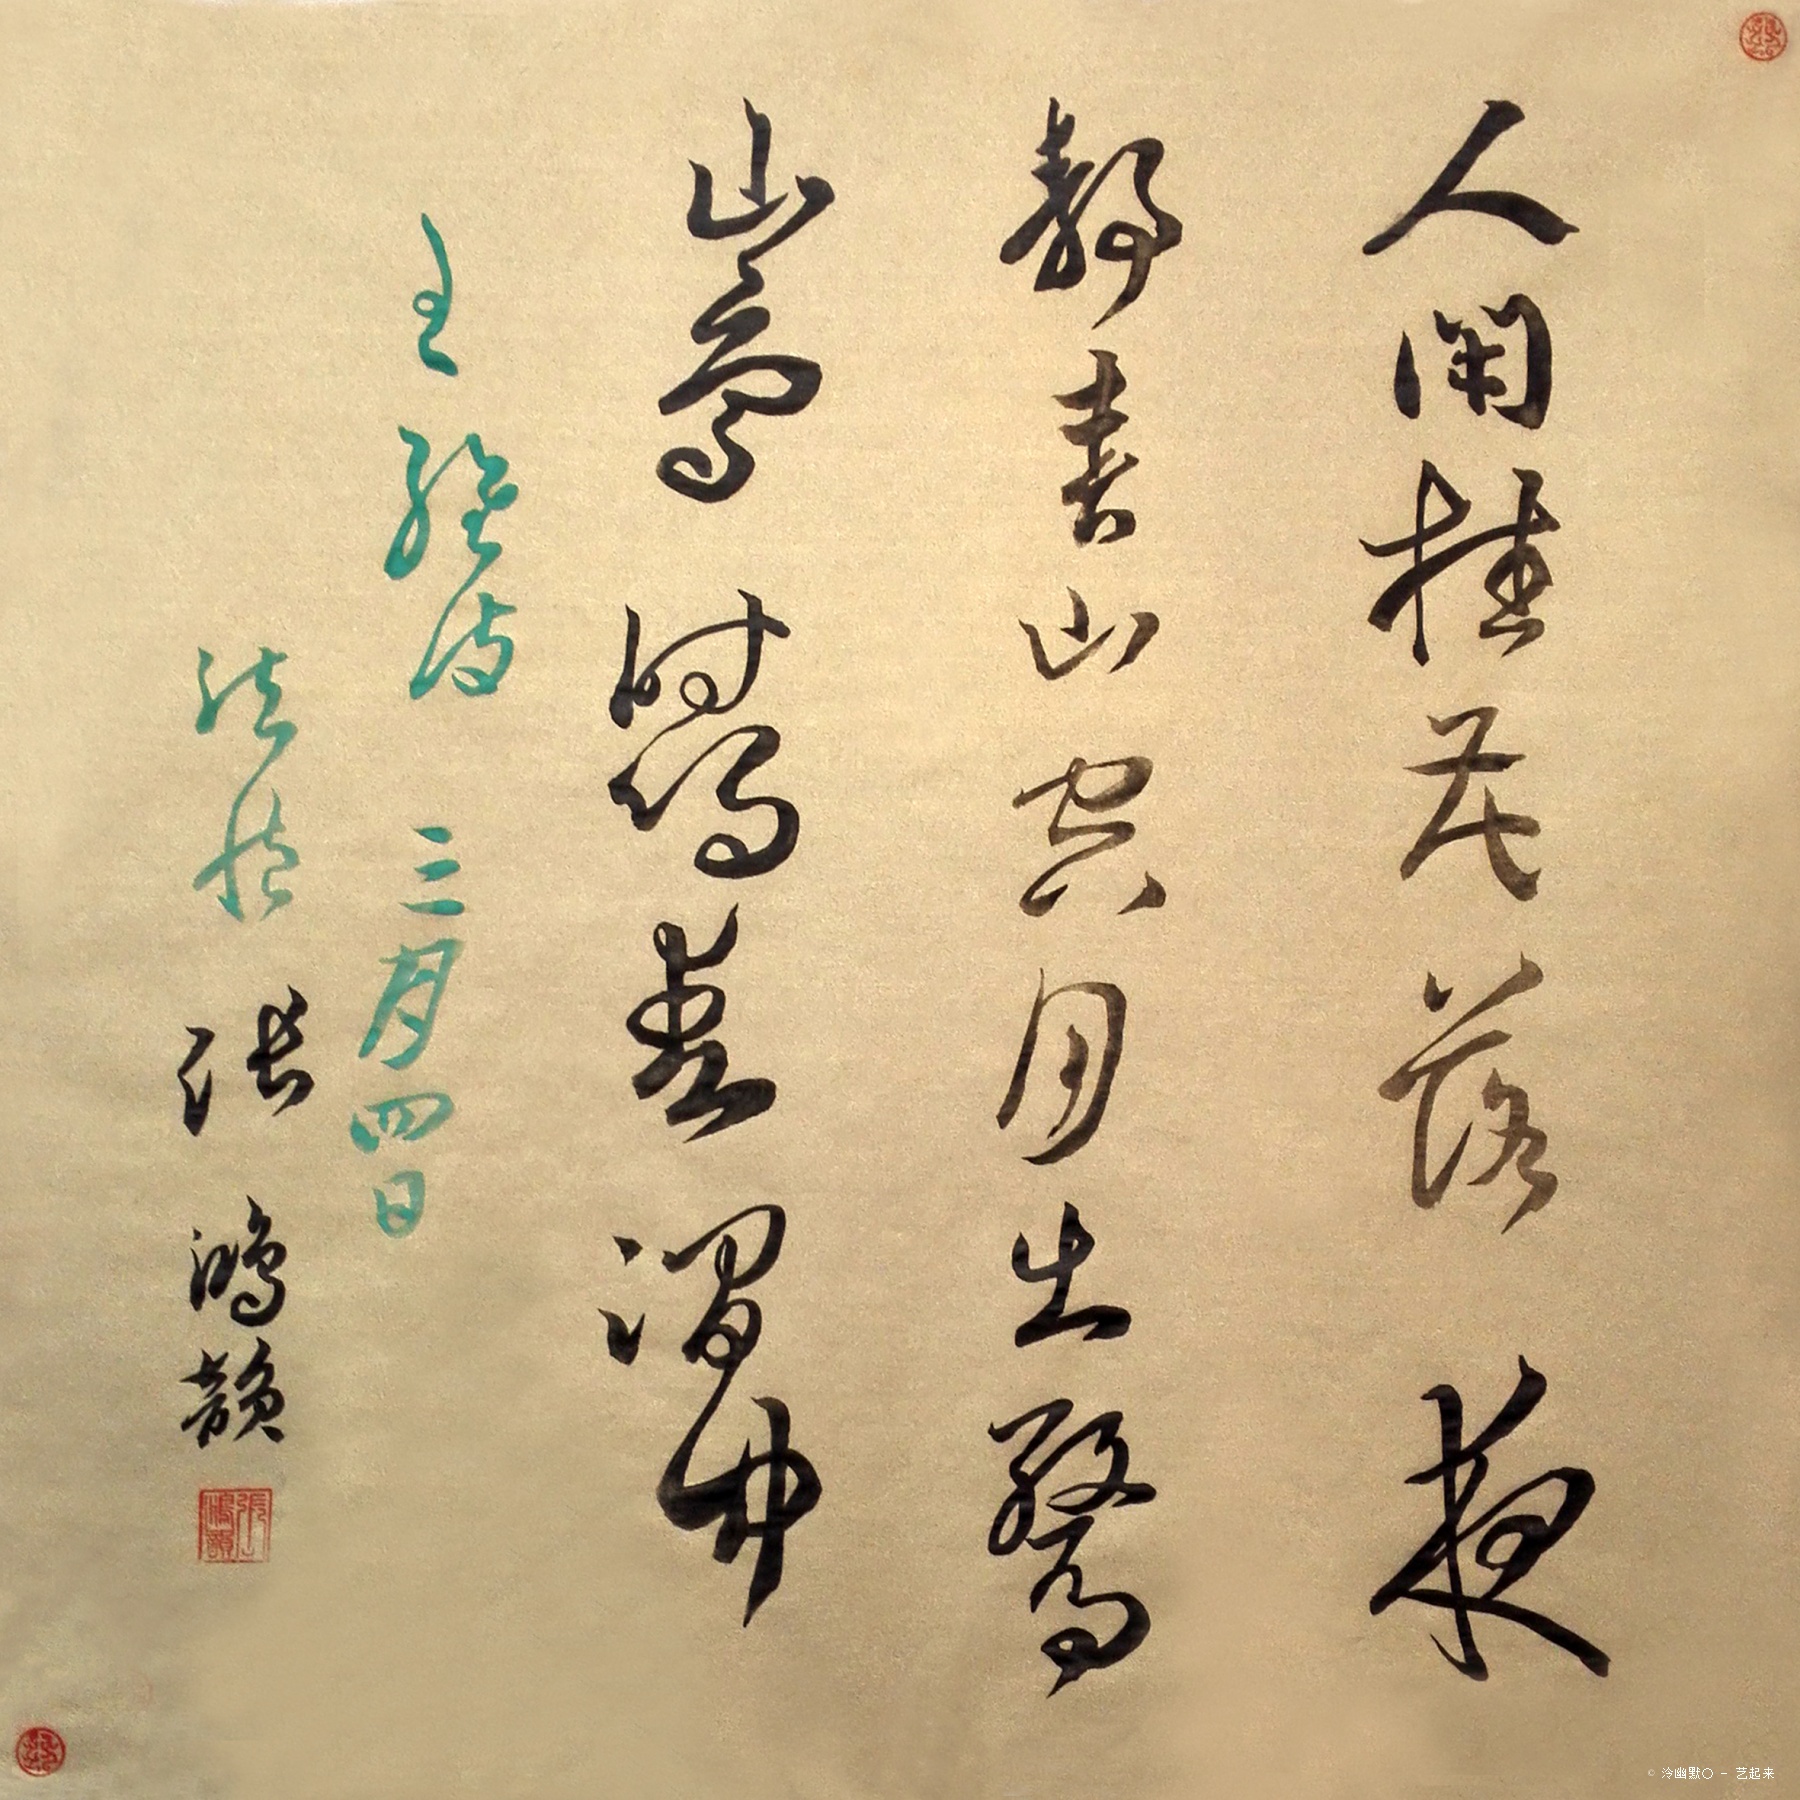 人閑桂花落夜
靜春山空月出驚
山鳥時鳴春澗中
王維詩 三月四日
張鴻韻
張鴻韻
© 冷幽默〇 - 艺起来